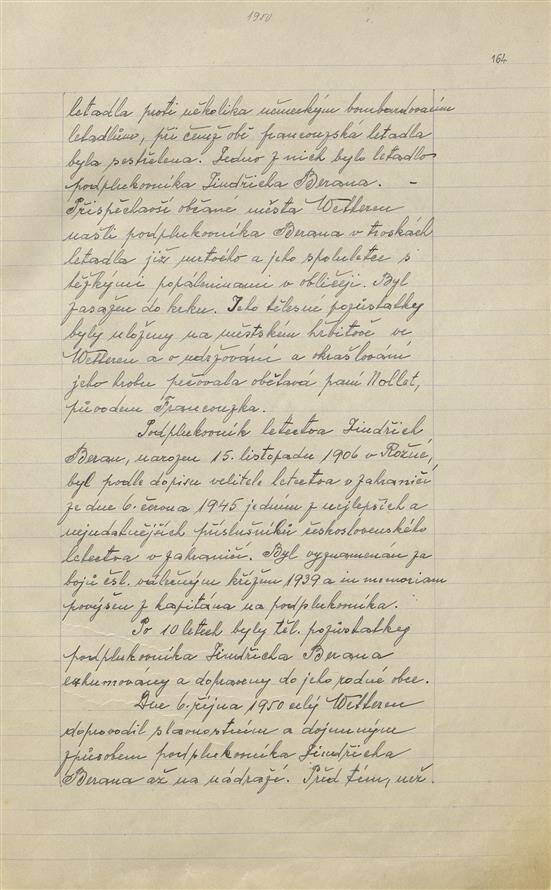 1950
164
letadla proti několika německým bombardovacím
letadlům, při čemž obě francouzská letadla
byla sestřelena. Jedno z nich bylo letadlo
podplukovníka Jindřicha Berana. –
Přispěchavší občané města Wetteren
našli podplukovníka Berana v troskách
letadla již mrtvého a jeho spoluletce s
těžkými popáleninami v obličeji. Byl
zasažen do krku. Jeho tělesné pozůstatky
byly uloženy na městském hřbitově ve
Wetteren a o udržování a okrašlování
jeho hrobu pečovala obětavá paní Nollet,
původem Francouzka.
Podplukovník letectva Jindřich
Beran, narozen 15. listopadu 1906 v Rožné,
byl podle dopisu velitele letectva v zahraničí
ze dne 6. června 1945 jedním z nejlepších a
nejudatnějších příslušníků československého
letectva v zahraničí. Byl vyznamenan za
bojů čsl. válečným křížem 1939 a in memoriam
povýšen z kapitána na podplukovníka.
Po 10 letech byly těl. pozůstatky
podplukovníka Jindřicha Berana
exhumovany a dopraveny do jeho rodné obce.
Dne 6. října 1950 celý Wetteren
doprovodil slavnostním a dojemným
způsobem podplukovníka Jindřicha
Berana až na nádraží. Před tím, než